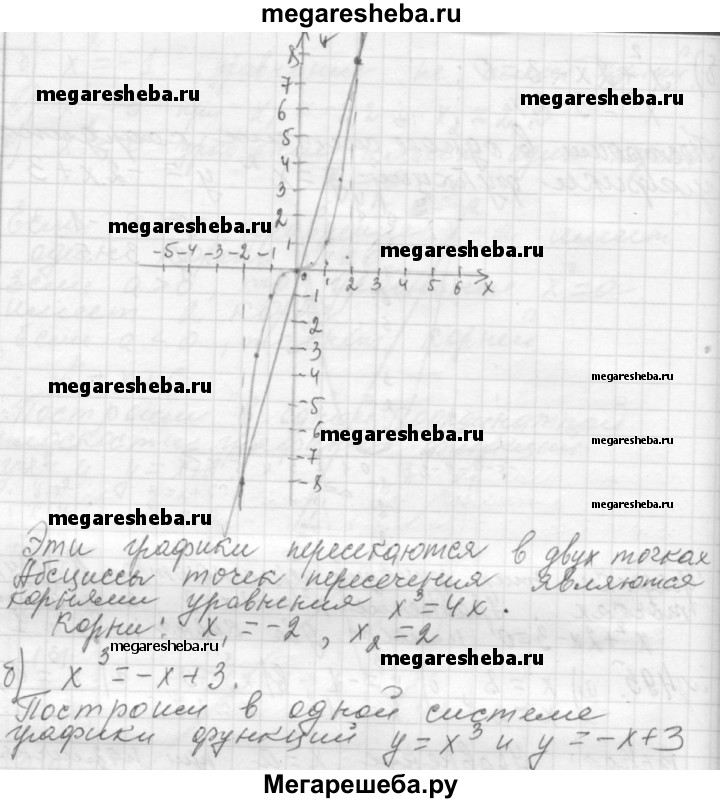 megaresheba.ru
y
8
7
megaresheba.ru
megaresheba.ru
6
5
4
3
2
megaresheba.ru
1
megaresheba.ru
-5 -4 -3 -2 -1
0 1 2 3 4 5 6 x
-1
-2
-3
megaresheba.ru
megaresheba.ru
-4
-5
-6
megaresheba.ru
megaresheba.ru
-7
-8
megaresheba.ru
megaresheba.ru
Эти графики пересекаются в двух точках
Абсциссы точек пересечения являются
корнями уравнения x³=4x.
Корни: x₁=-2, x₂=2
megaresheba.ru
megaresheba.ru
б) x³=-x+3.
Построим в одной системе
графики функций y=x³ и y=-x+3
Мегарешеба.ру